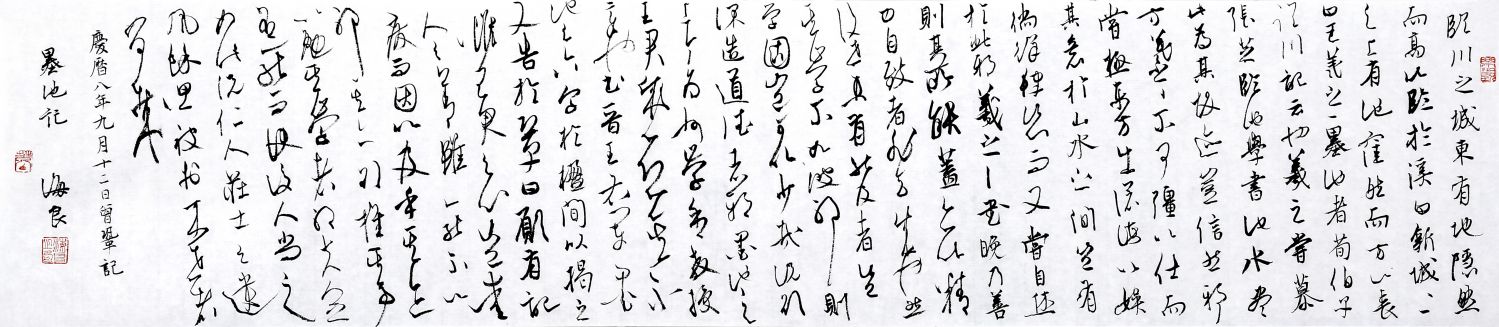 臨川之城東有地隱然
而高以臨於溪曰新城二
之上有池窪然而方以長
曰王羲之之墨池者荀伯子
臨川記云也羲之嘗慕
張芝臨池學書池水盡
此為其故迹豈信然邪
方羲之之不可彊以仕而
嘗極東方出滄海以娛
其意於山水之間豈有
徜徉肆恣而又嘗自休
於此邪羲之之書晚乃善
則其所能蓋亦以精
力自致者非天成也然
後世未有能及者豈
其學不如彼邪則
學固豈可以少哉況欲
深造道德者邪墨池之
上今為州學舍教授
王君盛恐其不
章也書晉王右軍墨
池之六字於楹間以揭之
又告於鞏曰願有記
推王君之心豈愛
人之善雖一能不以
廢而因以及乎其迹
邪其亦欲推其事
以勉其學者邪夫人之
有一能而使後人尚之
如此況仁人莊士之遺
風餘思被於來世者
何如哉
慶曆八年九月十二日曾鞏記
墨池記 海良